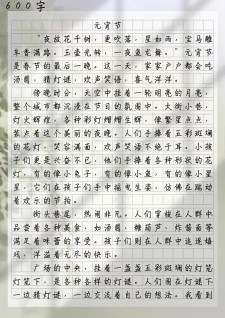 600字
元宵节
"夜放花千树,更吹落,星如雨,宝马雕
车香满路。玉壶光转,一夜鱼龙舞。"元宵节
是春节的最后一晚。这一天,家家户户都会吃
汤圆,猜灯谜,欢声笑语,喜气洋洋。
傍晚时分,天空中挂着一轮明亮的月亮,
整个城市都沉浸在节日的氛围中。大街小巷,
灯火辉煌,各种彩灯熠熠生辉,像繁星点点,
装点着这个美丽的夜晚。人们手捧着五彩斑斓
的花灯,笑容满面,欢声笑语不绝于耳。小孩
子们更是兴奋不已,他们手提着各种形状的花
灯,有的像小兔子,有的像小鱼,有的像小星
星,它们在孩子们手中摇曳生姿,仿佛在跳动
着欢乐的节拍。
街头巷尾,热闹非凡。人们穿梭在人群中
品尝着各种美食,如汤圆、糖葫芦、炸酱面等
满足着味蕾的享受。孩子们则在人群中追逐嬉
戏,洋溢着无尽的快乐。
广场的中央,挂着一盏盏五彩斑斓的灯笼
灯笼下,是各种各样的灯谜。人们围在灯谜下
一边猜灯谜,一边交流着自己的想法。我看到